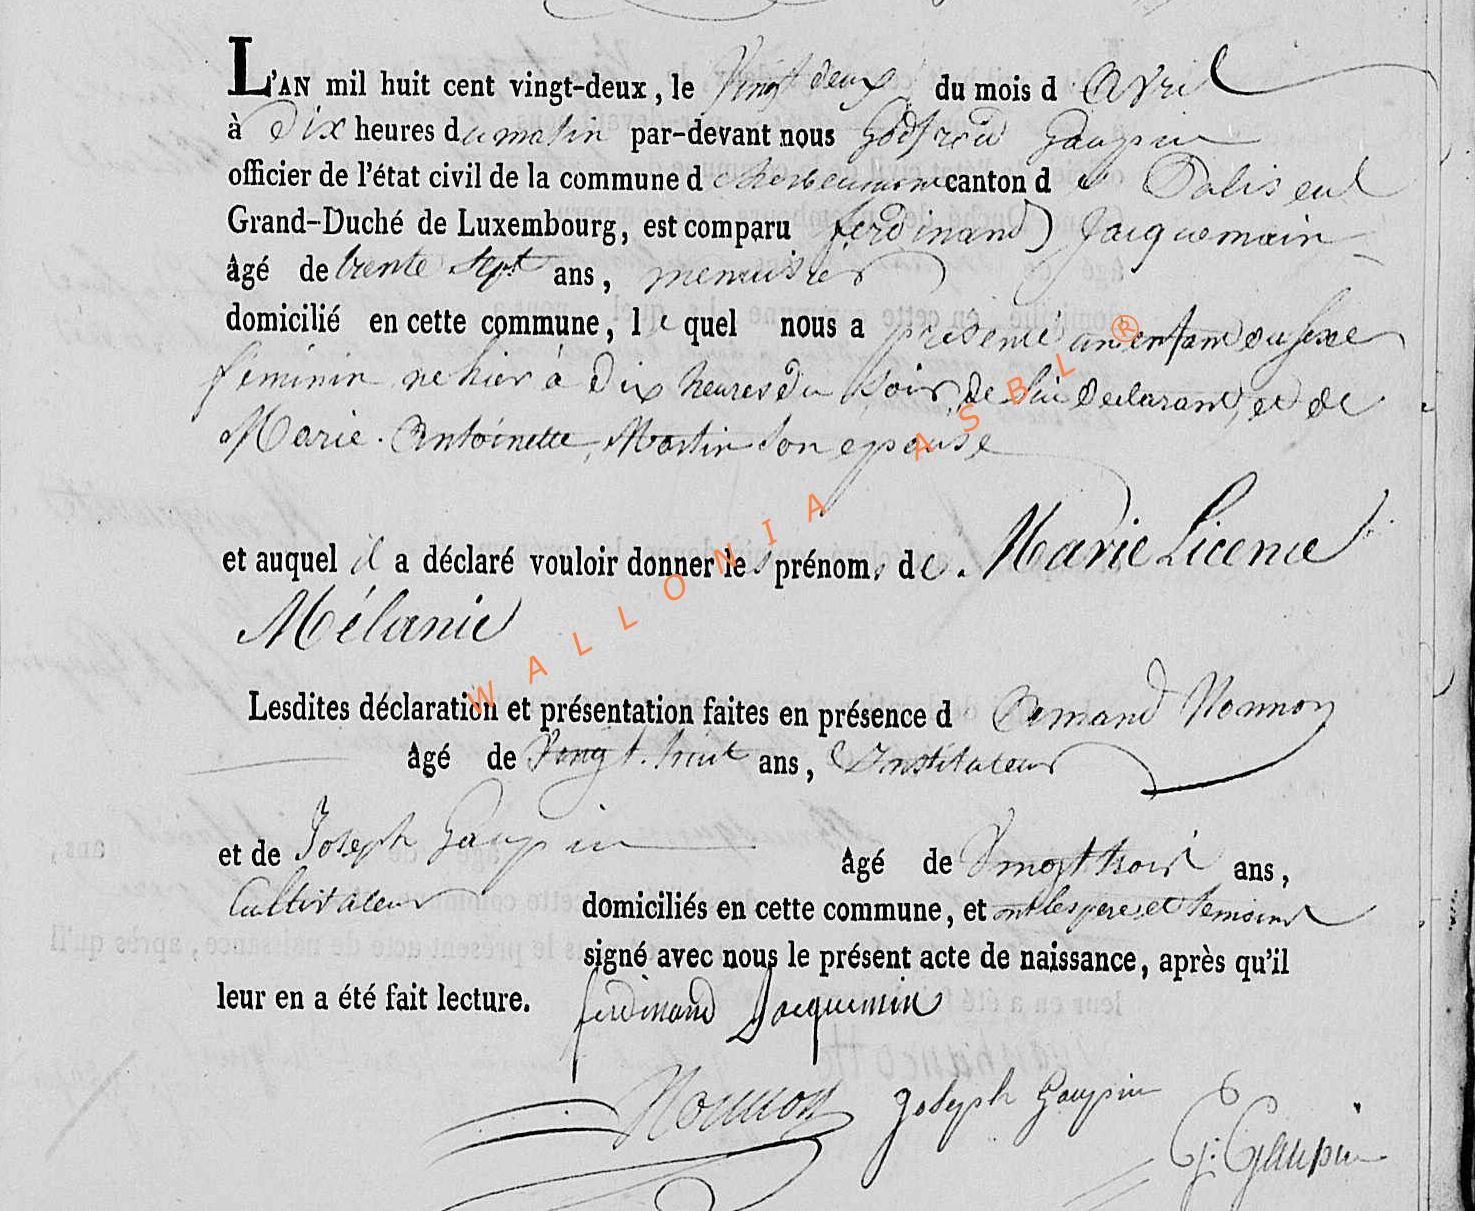 L'AN mil huit cent vingt-deux, le Vingt deux du mois d'Avril
à Dix heures du matin par-devant nous Godfroid Gaupin
officier de l'état civil de la commune d'herbeumont canton de Paliseul
Grand-Duché de Luxembourg, est comparu ferdinand Jacquemain
âgé de trente sept ans, menuisier
domicilié en cette commune, le quel nous a présenté un enfant du sexe
féminin né hier à Dix heures du Soir, de lui Déclarant, et de
Marie Antoinette Martin son epouse
et auquel il a déclaré vouloir donner les prénoms de Marie Licenie
Mélanie
Lesdites déclaration et présentation faites en présence d Nonnon
âgé de Vingt huit ans, Instituteur
et de Joseph Gaupin âgé de Vingt trois ans,
Cultivateur domiciliés en cette commune, et ont les pere et temoins
signé avec nous le présent acte de naissance, après qu'il
leur en a été fait lecture. ferdinand Jacquemin
Nonnon Joseph Gaupin
G: Gaupin
WALLONIA ASBL ®